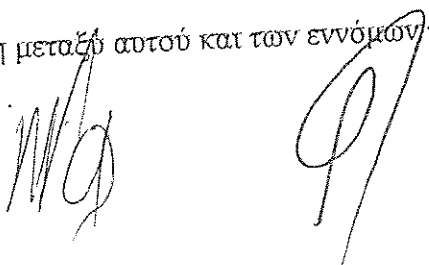 η μεταξύ αυτού και των εννόμων